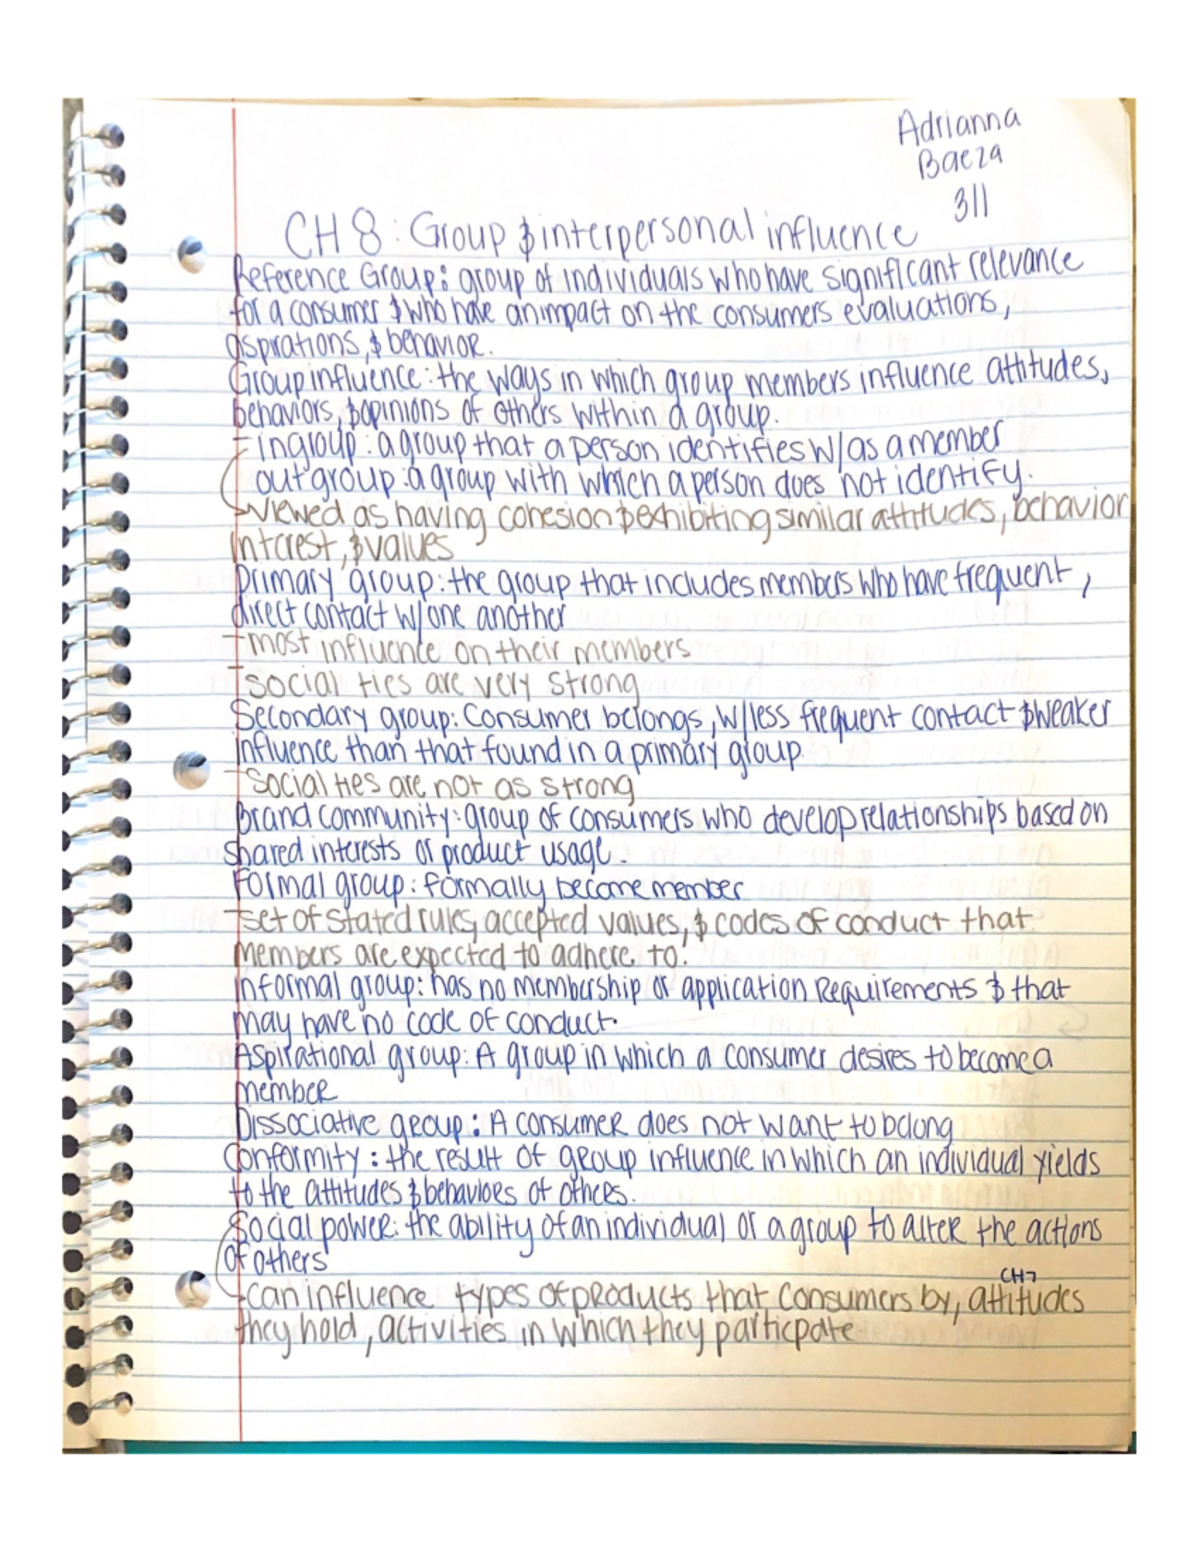 Adrianna
Baeza
311
CH 8: Group & interpersonal influence
Reference Group: group of individuals who have significant relevance
for a consumer & who have an impact on the consumers evaluations,
aspirations, & behavior.
Group influence: the ways in which group members influence attitudes,
behaviors, & opinions of others within a group.
- ingroup: a group that a person identifies w/ as a member
outgroup: a group with which a person does not identify.
viewed as having cohesion & exhibiting similar attitudes, behavior
intrest, & values
Primary group: the group that includes members who have frequent,
direct contact w/ one another
- most influence on their members
- social ties are very strong
Secondary group: Consumer belongs, w/ less frequent contact & weaker
influence than that found in a primary group.
- Social ties are not as strong
Brand community: group of consumers who develop relationships based on
shared interests or product usage.
Formal group: formally become member
- set of stated rules, accepted values, & codes of conduct that
members are expected to adhere to.
Informal group: has no membership or application requirements & that
may have no code of conduct.
Aspirational group: A group in which a consumer desires to become a
member
Dissociative group: A consumer does not want to belong
Conformity: the result of group influence in which an individual yields
to the attitudes & behaviors of others.
Social power: the ability of an individual or a group to alter the actions
of others
CH7
can influence types of products that consumers by, attitudes
they hold, activities in which they particpate